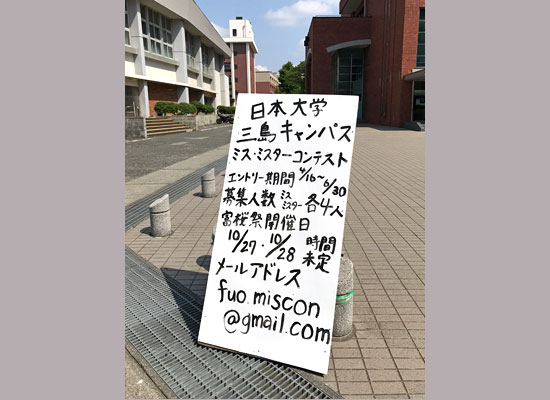 日本大学
三島キャンパス
ミス・ミスターコンテスト
エントリー期間 4/16～6/30
募集人数 ミス ミスター 各4人
富桜祭開催日
10/27・10/28 時間未定
メールアドレス
fuo.miscon
@gmail.com